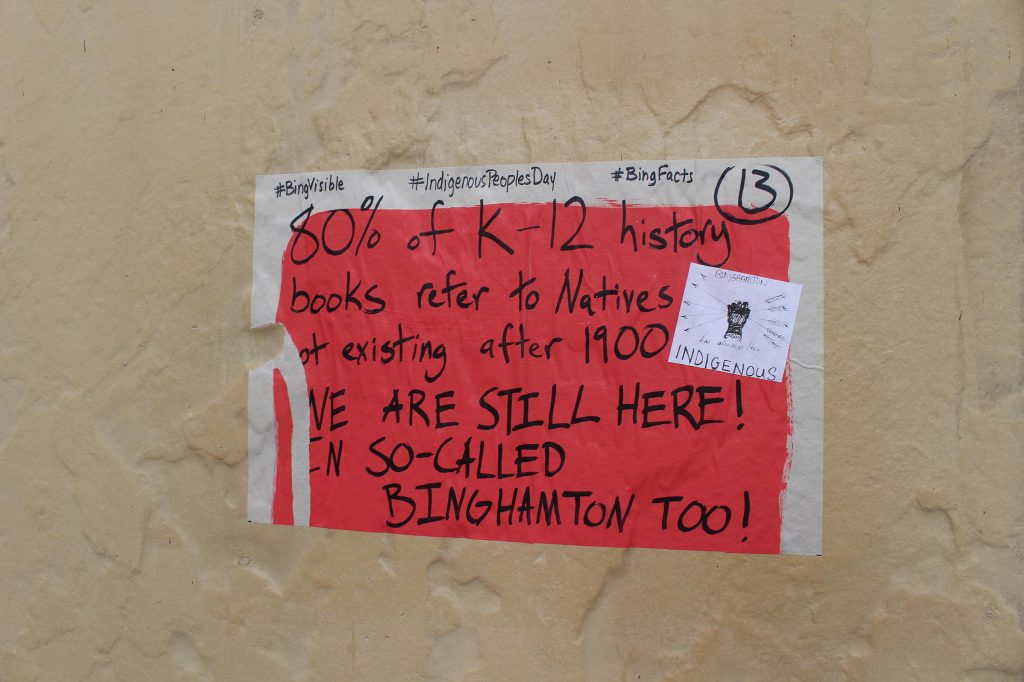 #BingVisible #IndigenousPeoplesDay #BingFacts 13
80% of K-12 history
books refer to Natives
ot existing after 1900
WE ARE STILL HERE!
IN SO-CALLED
BINGHAMTON TOO!
BINGHAMTON
INDIGENOUS